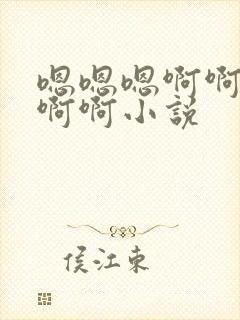 嗯嗯嗯啊啊
啊啊小説
侯江東